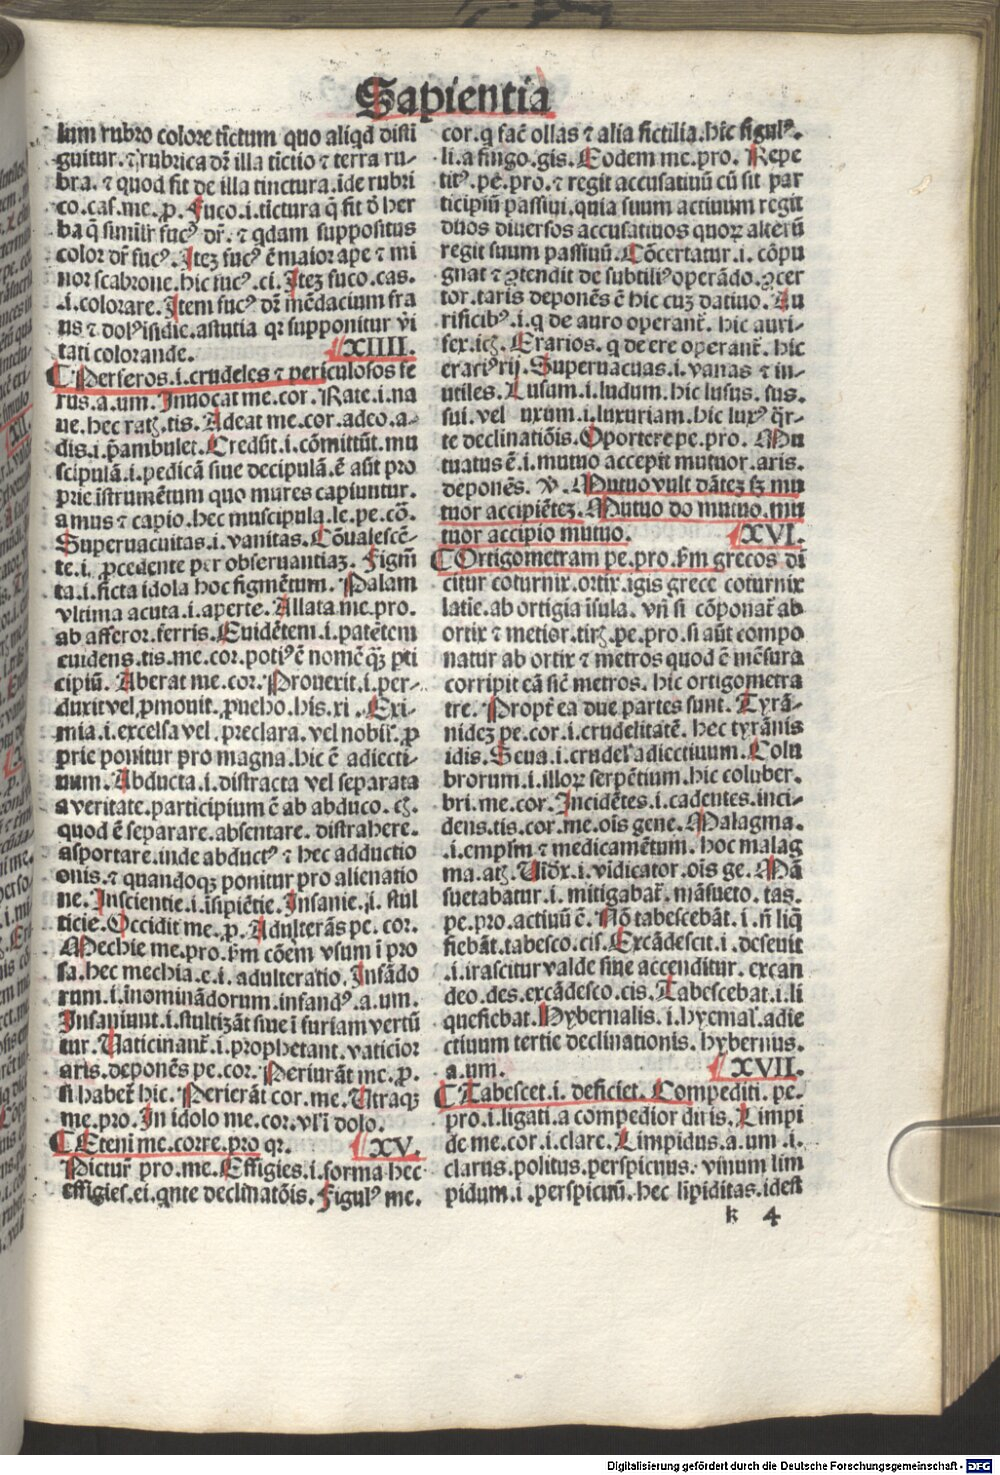 Sapientia
lum rubro colore tīctum quo aliqd disti
guitur. ⁊ rubrica dr̄ illa tīctio ⁊ terra ru-
bra. ⁊ quod fit de illa tinctura. īde rubri
co. cas. me. p̱. Fuco .i. tīctura q̄ fit ō her
ba q̄ simil'r fucꝰ dr̄. ⁊ qdam suppositus
color dr̄ fucꝰ. Iteꝫ fucꝰ ē maior ape ⁊ mi
nor scabrone. hic fucꝰ. ci. Iteꝫ fuco. cas.
.i. colorare. Item fucꝰ dr̄ mēdacium fra
us ⁊ dolꝰ isidie. astutia qr supponitur v̄i
tati colorande. XIIII.
¶ Perseros .i. crudeles ⁊ periculosos se
rus. a. um. Inuocat me. cor. Rate .i. na
ue. hec ratꝫ. tis. Adeat me. cor. adeo. a-
dis .i. p̄ambulet. Credūt .i. cōmittūt. mu
scipulā .i. pedicā siue decipulā. ē aūt pro
prie īstrumētum quo mures capiuntur.
a mus ⁊ capio. hec muscipula. le. pe. cō.
Superuacuitas .i. vanitas. Cōualescē-
te .i. p̱cedente per obseruantiaꝫ. Figm̄
ta .i. ficta idola hoc figmētum. Palam
vltima acuta .i. aperte. Allata me. pro.
ab afferor. ferris. Euidētem .i. patētem
euidens. tis. me. cor. potiꝰ ē nomē qꝫ pti
cipiū. Aberat me. cor. Prouexit .i. per-
duxit vel p̱mouit. p̱ueho. his. xi. Exi-
mia .i. excelsa vel p̱reclara. vel nobil'. p̱
prie ponitur pro magna. hic ē adiecti-
uum. Abducta .i. distracta vel separata
a veritate. participium ē ab abduco. cꝫ.
quod ē separare. absentare. distrahere.
asportare. inde abductꝰ ⁊ hec adductio
onis. ⁊ quandoqꝫ ponitur pro alienatio
ne. Inscientie .i. īsipiētie. Insanie .i. stul
ticie. Occidit me. p̱. Adulterās pe. cor.
Mechie me. pro. s̄m cōem vsum i pro
sa. hec mechia. e .i. adulteratio. Infādo
rum .i. īnomināndorum. infandꝰ. a. um.
Insaniunt .i. stultizāt siue ī furiam vertū
tur. Uaticinant̄ .i. prophetant. vaticior
aris. deponēs pe. cor. Periurāt me. p̱.
si habet̄ hic. Perierāt cor. me. Utraqꝫ
me. pro. In idolo me. cor. vl' i dolo.
¶ Eteni me. corre. pro qr. XV.
Pictur̄ pro. me. Effigies .i. forma hec
effigies. ei. qnte declinatōis. Figulꝰ me.
cor. q fac̄ ollas ⁊ alia fictilia. hic figulꝰ.
li. a fingo. gis. Eodem me. pro. Repe
titꝰ. pe. pro. ⁊ regit accusatiuū cū sit par
ticipiū passiui. quia suum actiuum regit
duos diuersos accusatiuos quoꝝ alterū
regit suum passiuū. Cōcertatur .i. cōpu
gnat ⁊ ꝯtendit de subtiliꝰ operādo. ꝯcer
tor. taris deponēs ē hic cuꝫ datiuo. Au
rificibꝰ .i. q de auro operant̄. hic auri-
fex. icꝫ. Erarios. q de ere operant̄. hic
erariꝰ rij. Superuacuas .i. vanas ⁊ in-
utiles. Lusam .i. ludum. hic lusus. sus.
sui. vel luxum .i. luxuriam. hic luxꝰ q̄r-
te declinatiōis. Oportere pe. pro. Mu
tuatus ē .i. mutuo accepit mutuor. aris.
deponēs. v̄. Mutuo vult dāteꝫ sꝫ mu
tuor accipiēteꝫ. Mutuo do mutuo. mu
tuor accipio mutuo. XVI.
¶ Ortigometram pe. pro. s̄m grecos di
citur coturnix. ortix. igis grece coturnix
latie. ab ortigia īsula. vn̄ si cōponat̄ ab
ortix ⁊ metior. tirꝫ. pe. pro. si aūt compo
natur ab ortix ⁊ metros quod ē mēsura
corripit eā sic̄ metros. hic ortigometra
tre. Propt̄ ea due partes sunt. Tyrā-
nideꝫ pe. cor .i. crudelitatē. hec tyrānis
idis. Seua .i. crudel' adiectiuum. Colu
brorum .i. illoꝝ serpētium. hic coluber.
bri. me. cor. Incidētes .i. cadentes. inci-
dens. tis. cor. me. oīs gene. Malagma.
.i. emplm̄ ⁊ medicamētum. hoc malag
ma. atꝫ. Uidx̄ .i. vīdicator. oīs ge. Mā
suetabatur .i. mitigabat̄. māsueto. tas.
pe. pro. actiuū ē. Nō tabescebāt .i. n̄ liq̄
fiebāt. tabesco. cis. Excādescit .i. deseuit
.i. irascitur valde sine accenditur. excan
deo. des. excādesco. cis. Tabescebat .i. li
quefiebat. Hybernalis .i. hyemal'. adie
ctiuum tertie declinationis. hybernus.
a. um. XVII.
¶ Tabescet .i. deficiet. Compediti. pe.
pro .i. ligati. a compedior diris. Limpi
de me. cor .i. clare. Limpidus. a. um .i.
clarus. politus. perspicnus. vinum lim
pidum .i. perspicuū. hec lipiditas. idest
k 4
Digitalisierung gefördert durch die Deutsche Forschungsgemeinschaft - DFG